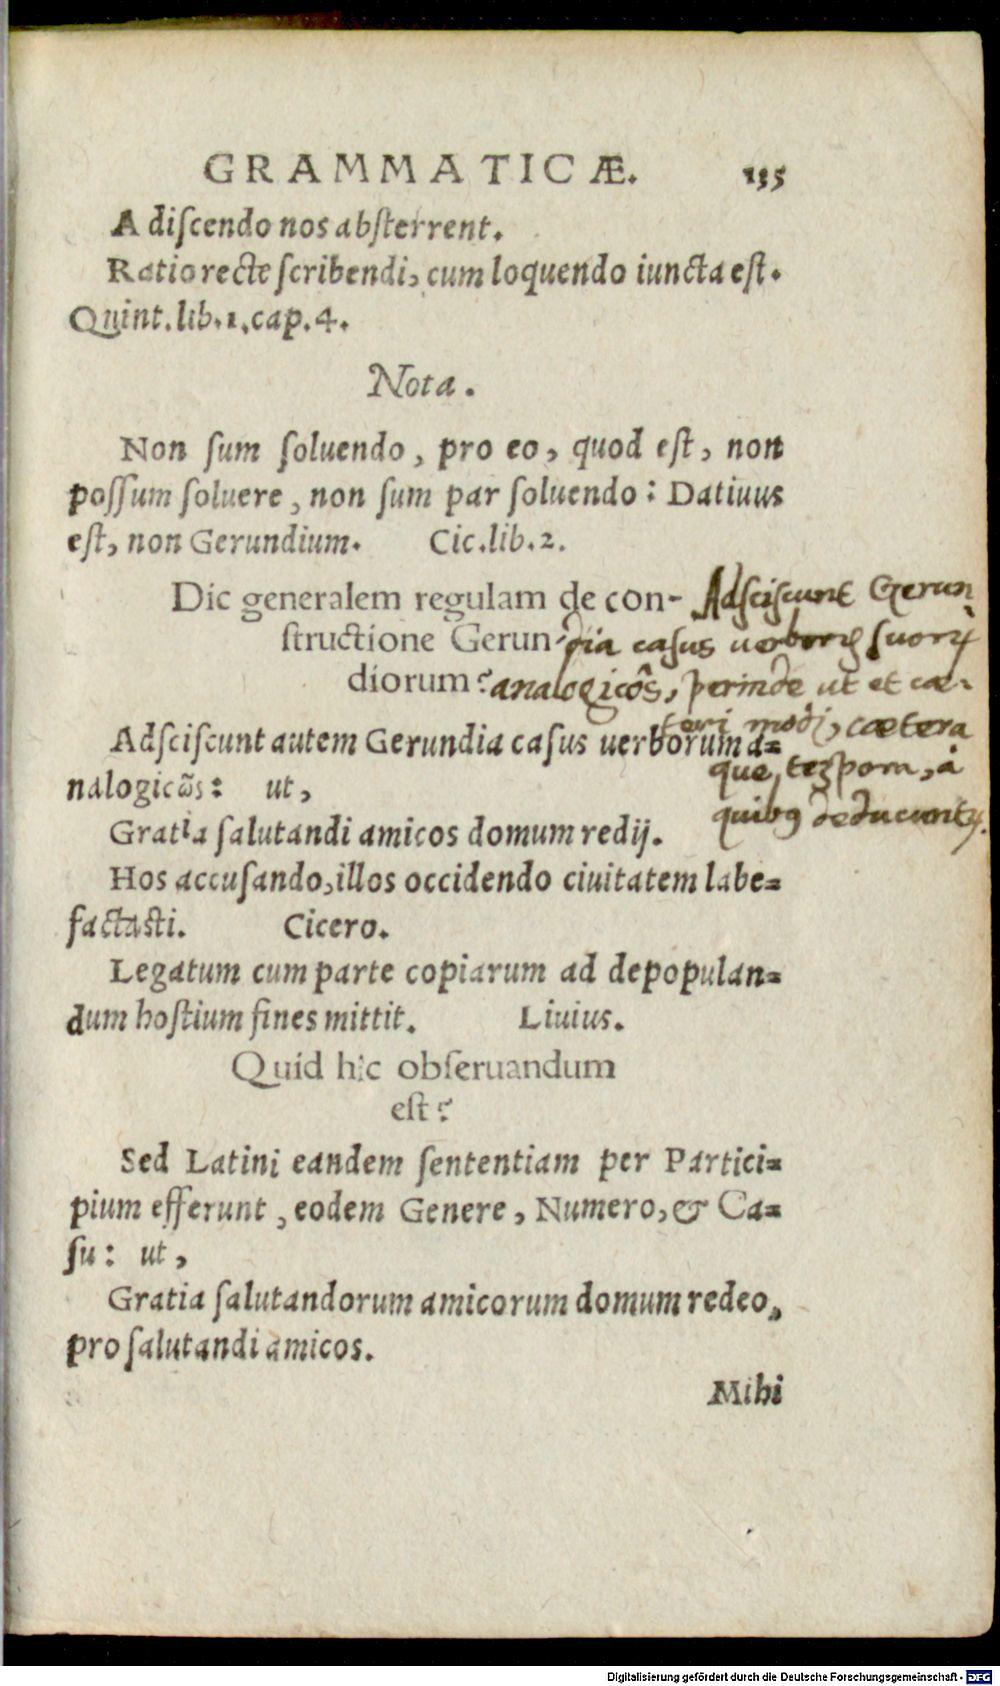 GRAMMATICÆ. 135
A diſcendo nos abſterrent.
Ratio recte ſcribendi, cum loquendo iuncta eſt.
Quint. lib. 1. cap. 4.
Nota.
Non ſum ſoluendo, pro eo, quod eſt, non
poſſum ſoluere, non ſum par ſoluendo: Datiuus
eſt, non Gerundium. Cic. lib. 2.
Dic generalem regulam de con-
ſtructione Gerun-
diorum?
Adſciſcunt Gerun
dia caſus uerborꝝ ſuorꝝ
analogicῶs, perinde ut et cæ-
teri modi, cætera
que tēpora, à
quibꝯ deducuntꝛ.
Adſciſcunt autem Gerundia caſus uerborum a=
nalogicῶs: ut,
Gratia ſalutandi amicos domum redij.
Hos accuſando, illos occidendo ciuitatem labe=
factaſti. Cicero.
Legatum cum parte copiarum ad depopulan=
dum hoſtium fines mittit. Liuius.
Quid hic obſeruandum
eſt?
Sed Latini eandem ſententiam per Partici=
pium efferunt, eodem Genere, Numero, & Ca=
ſu: ut,
Gratia ſalutandorum amicorum domum redeo,
pro ſalutandi amicos.
Mihi
Digitalisierung gefördert durch die Deutsche Forschungsgemeinschaft - DFG